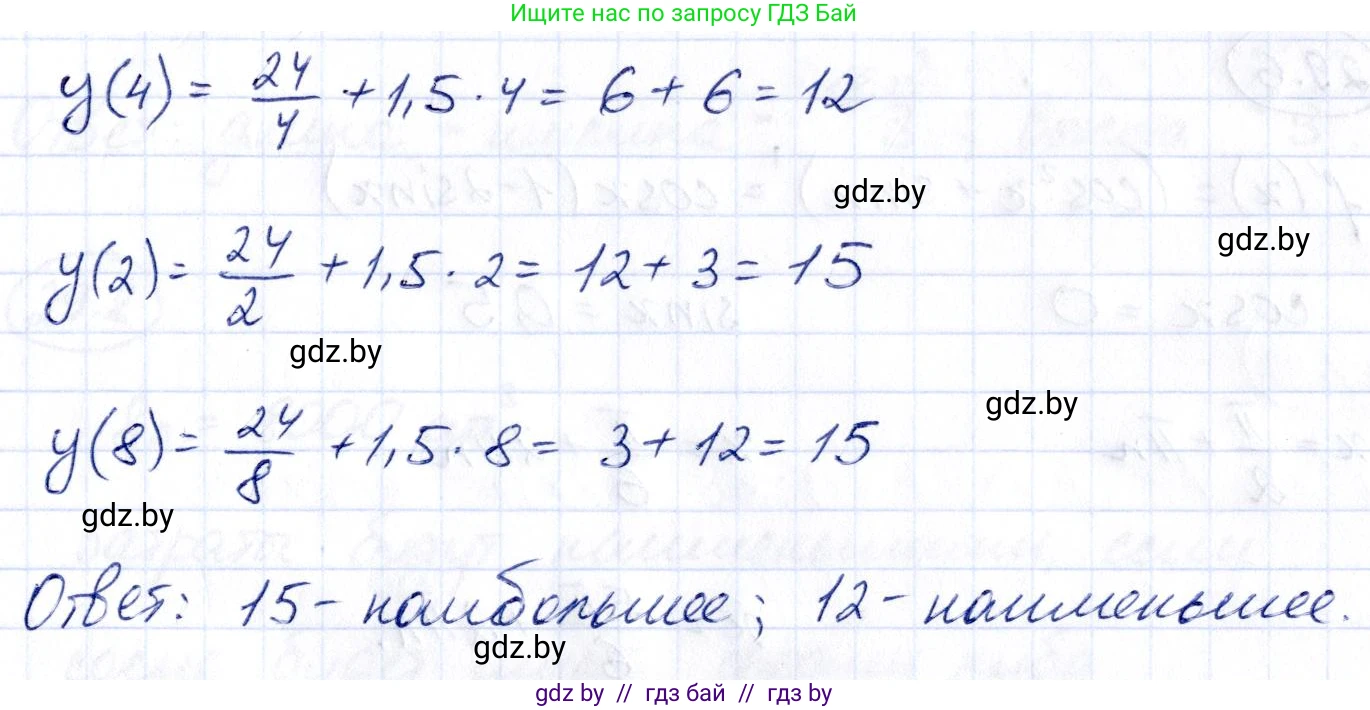 Ищите нас по запросу ГДЗ Бай
y(4) = 24/4 + 1,5 · 4 = 6 + 6 = 12
gdz.by
gdz.by
y(2) = 24/2 + 1,5 · 2 = 12 + 3 = 15
gdz.by
gdz.by
y(8) = 24/8 + 1,5 · 8 = 3 + 12 = 15
gdz.by
Ответ: 15 - наибольшее; 12 - наименьшее.
gdz.by
gdz by // гдз бай // gdz by